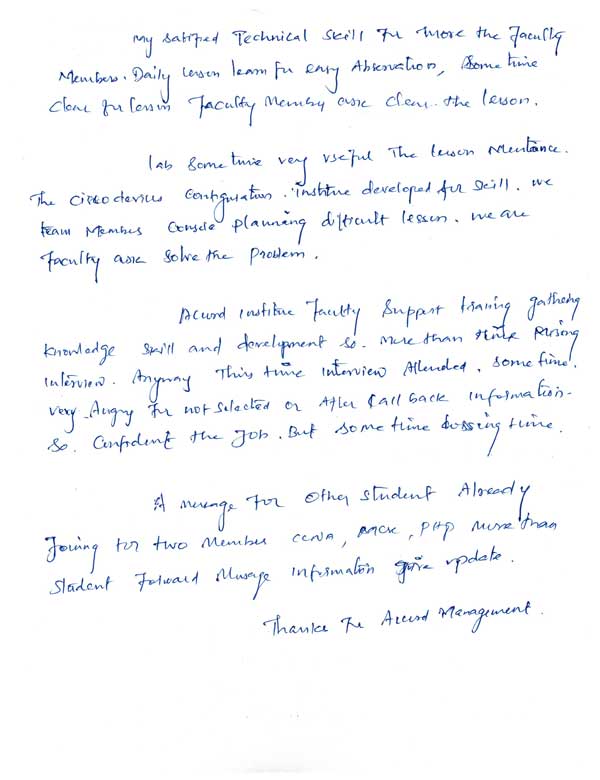 My satified Technical Skill for More the Faculty
Members. Daily lesson learn for easy Abservation, Some time
Clear for lesson Faculty Member ask clear the lesson.
lab Some time very useful The lesson Mentance.
The Cisco devices Configuration. institue developed for skill. we
team Members Console planning difficult lesson. we are
Faculty ask solve the problem.
Accord institue Faculty Support training gathering
knowledge skill and development so. More than time
interview. Anyway This time interview Attended. some time.
very Angry for not selected or After Call back information.
So. Confident the Job. But some time time.
A message for other student Already
Joining for two Member CCNA, , PHP more than
Student Forward Message information give update.
Thanks for Accord Management.